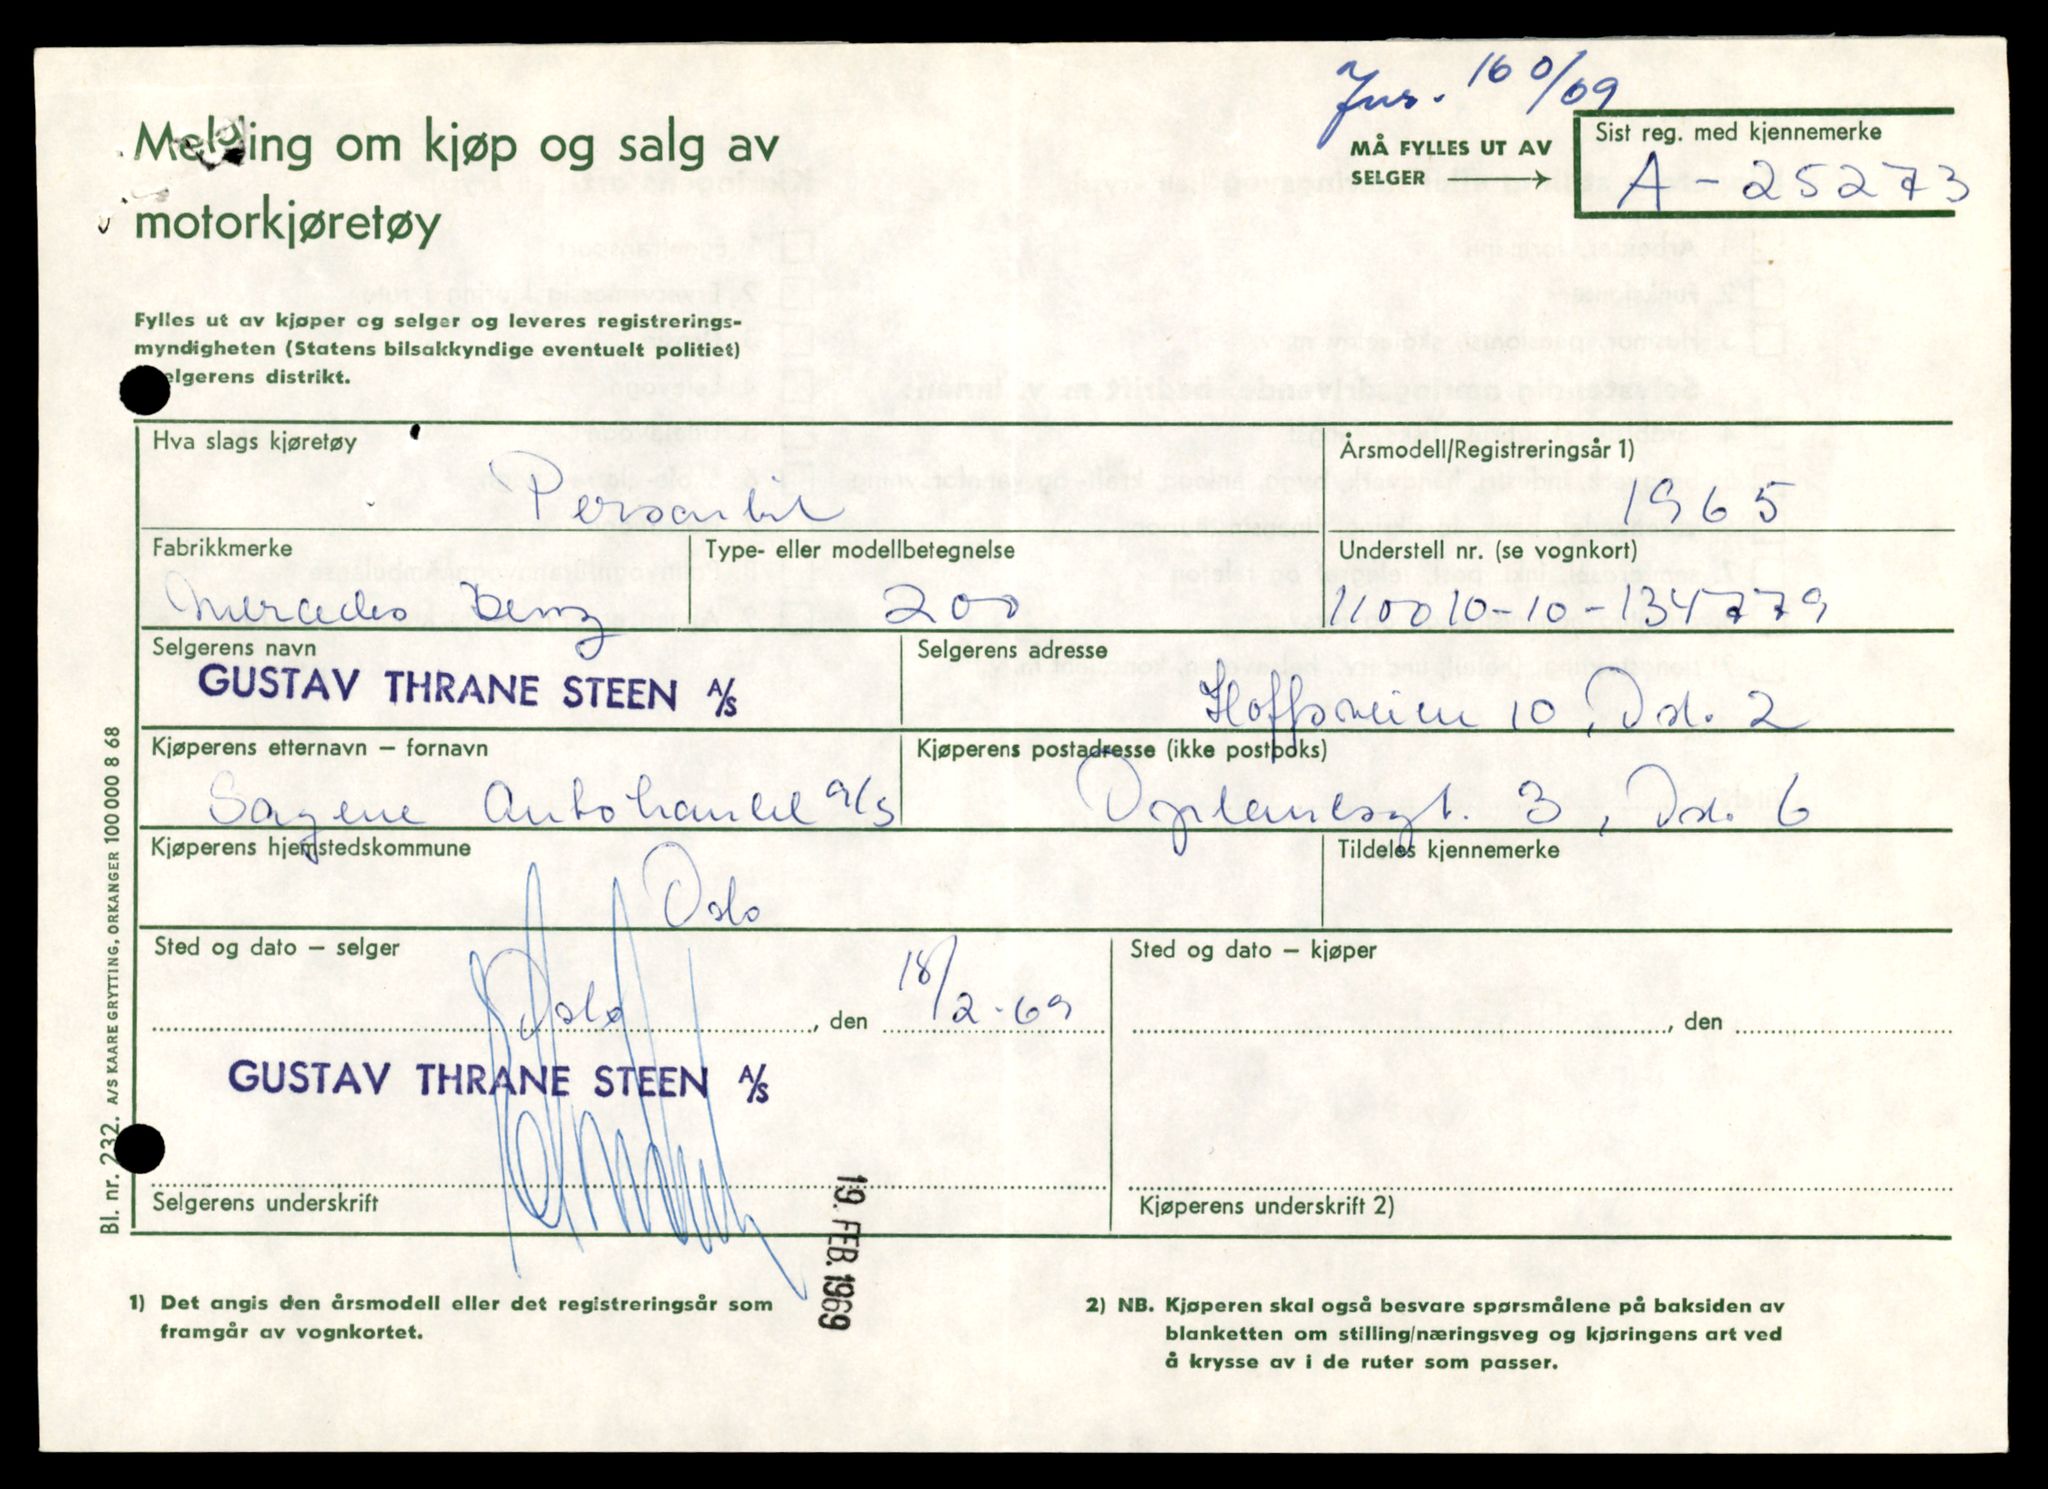 Jnr. 160/69
Melding om kjøp og salg av
motorkjøretøy
MÅ FYLLES UT AV
SELGER
Sist reg. med kjennemerke
A-25273
Fylles ut av kjøper og selger og leveres registrerings-
myndigheten (Statens bilsakkyndige eventuelt politiet)
elgerens distrikt.
Hva slags kjøretøy
Personbil
Årsmodell/Registreringsår 1)
1965
Fabrikkmerke
Mercedes Benz
Type- eller modellbetegnelse
200
Understell nr. (se vognkort)
110010-10-134779
Selgerens navn
GUSTAV THRANE STEEN A/S
Selgerens adresse
Hoffsveien 10, Osl. 2
Kjøperens etternavn – fornavn
Sagene Autohandel A/S
Kjøperens postadresse (ikke postboks)
Oplandsgt. 3, Osl. 6
Kjøperens hjemstedskommune
Oslo
Tildeles kjennemerke
Sted og dato – selger
Oslo, den 18/2-69
Sted og dato – kjøper
, den
GUSTAV THRANE STEEN A/S
Selgerens underskrift
Kjøperens underskrift 2)
19. FEB. 1969
1) Det angis den årsmodell eller det registreringsår som
framgår av vognkortet.
2) NB. Kjøperen skal også besvare spørsmålene på baksiden av
blanketten om stilling/næringsveg og kjøringens art ved
å krysse av i de ruter som passer.
Bl. nr. 232. A/S KAARE GRYTTING, ORKANGER 100 000 8 68